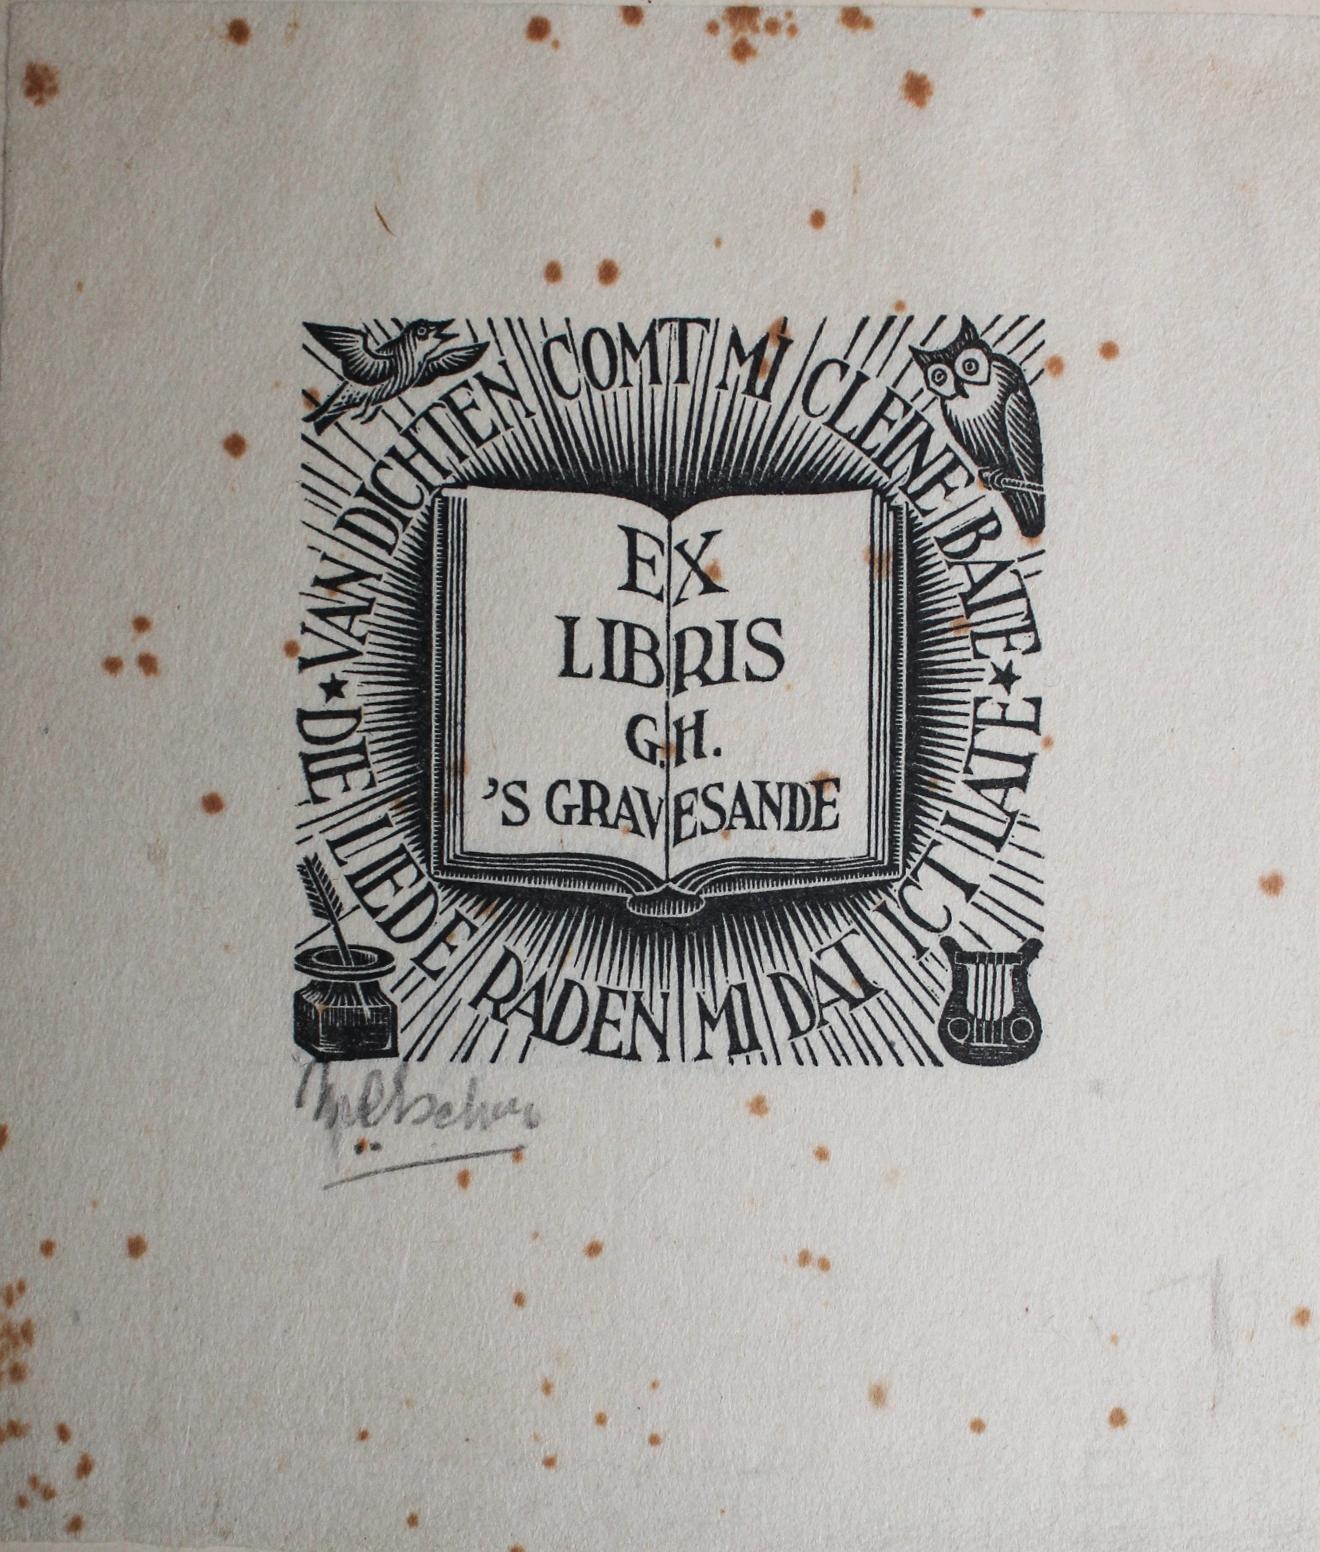 VAN DICHTEN COMT MI CLEINE BATE ★
DIE LIEDE RADEN MI DAT ICT LATE ★
EX
LIBRIS
G.H.
'S GRAVESANDE